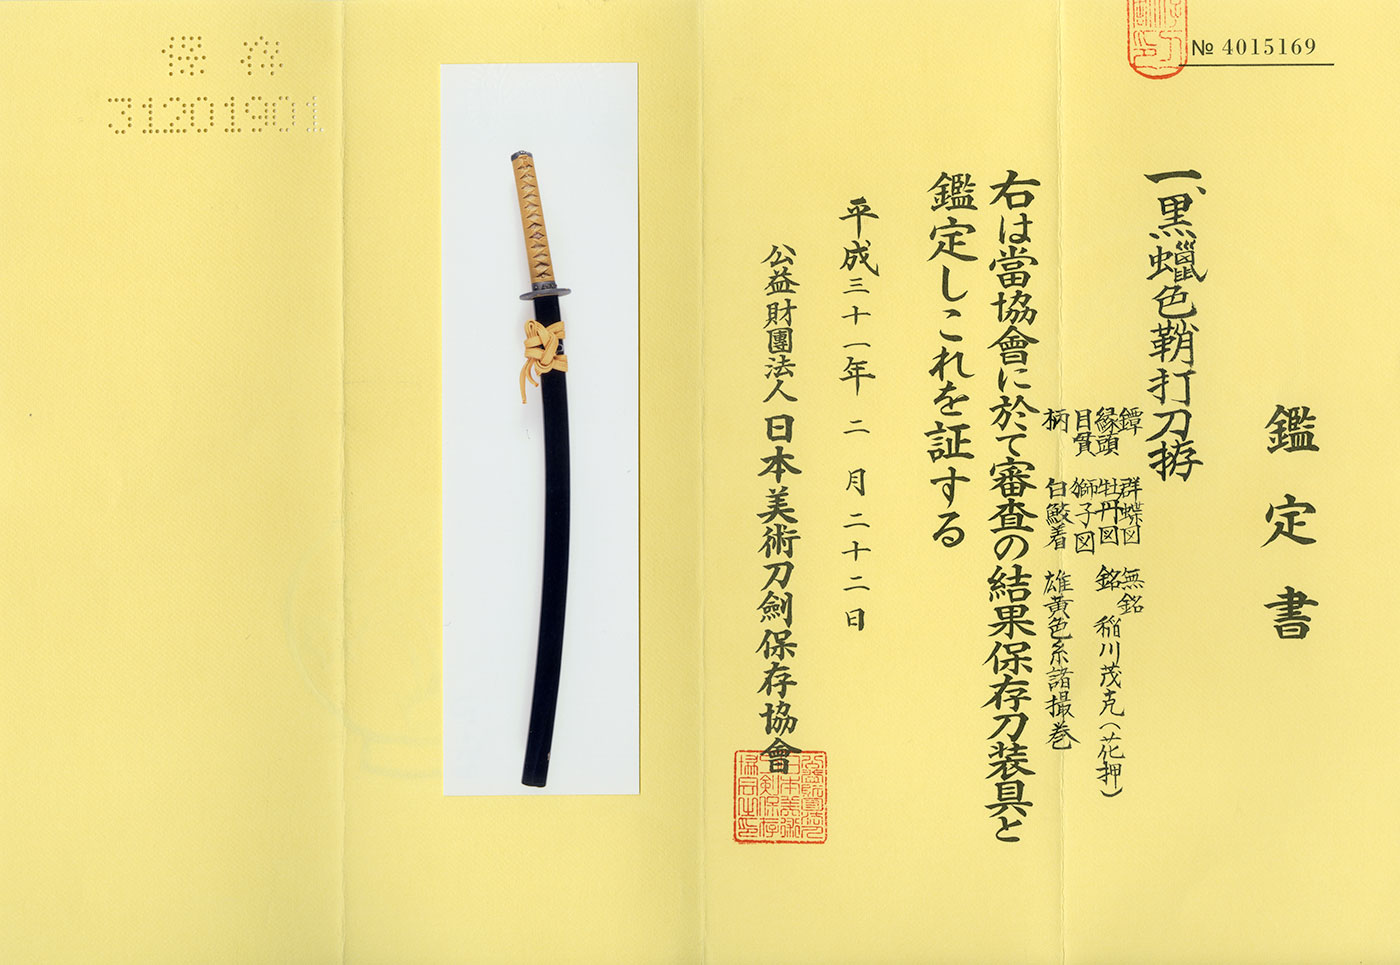 № 4015169
鑑定書
一、黒蠟色鞘打刀拵
鐔 群蝶図 無銘
縁頭 牡丹図 銘 稲川茂克（花押）
目貫 獅子図
柄 白鮫着 雄黄色糸諸撮巻
右は當協會に於て審査の結果保存刀装具と
鑑定しこれを証する
平成三十一年二月二十二日
公益財團法人 日本美術刀劍保存協會
保存
31201901